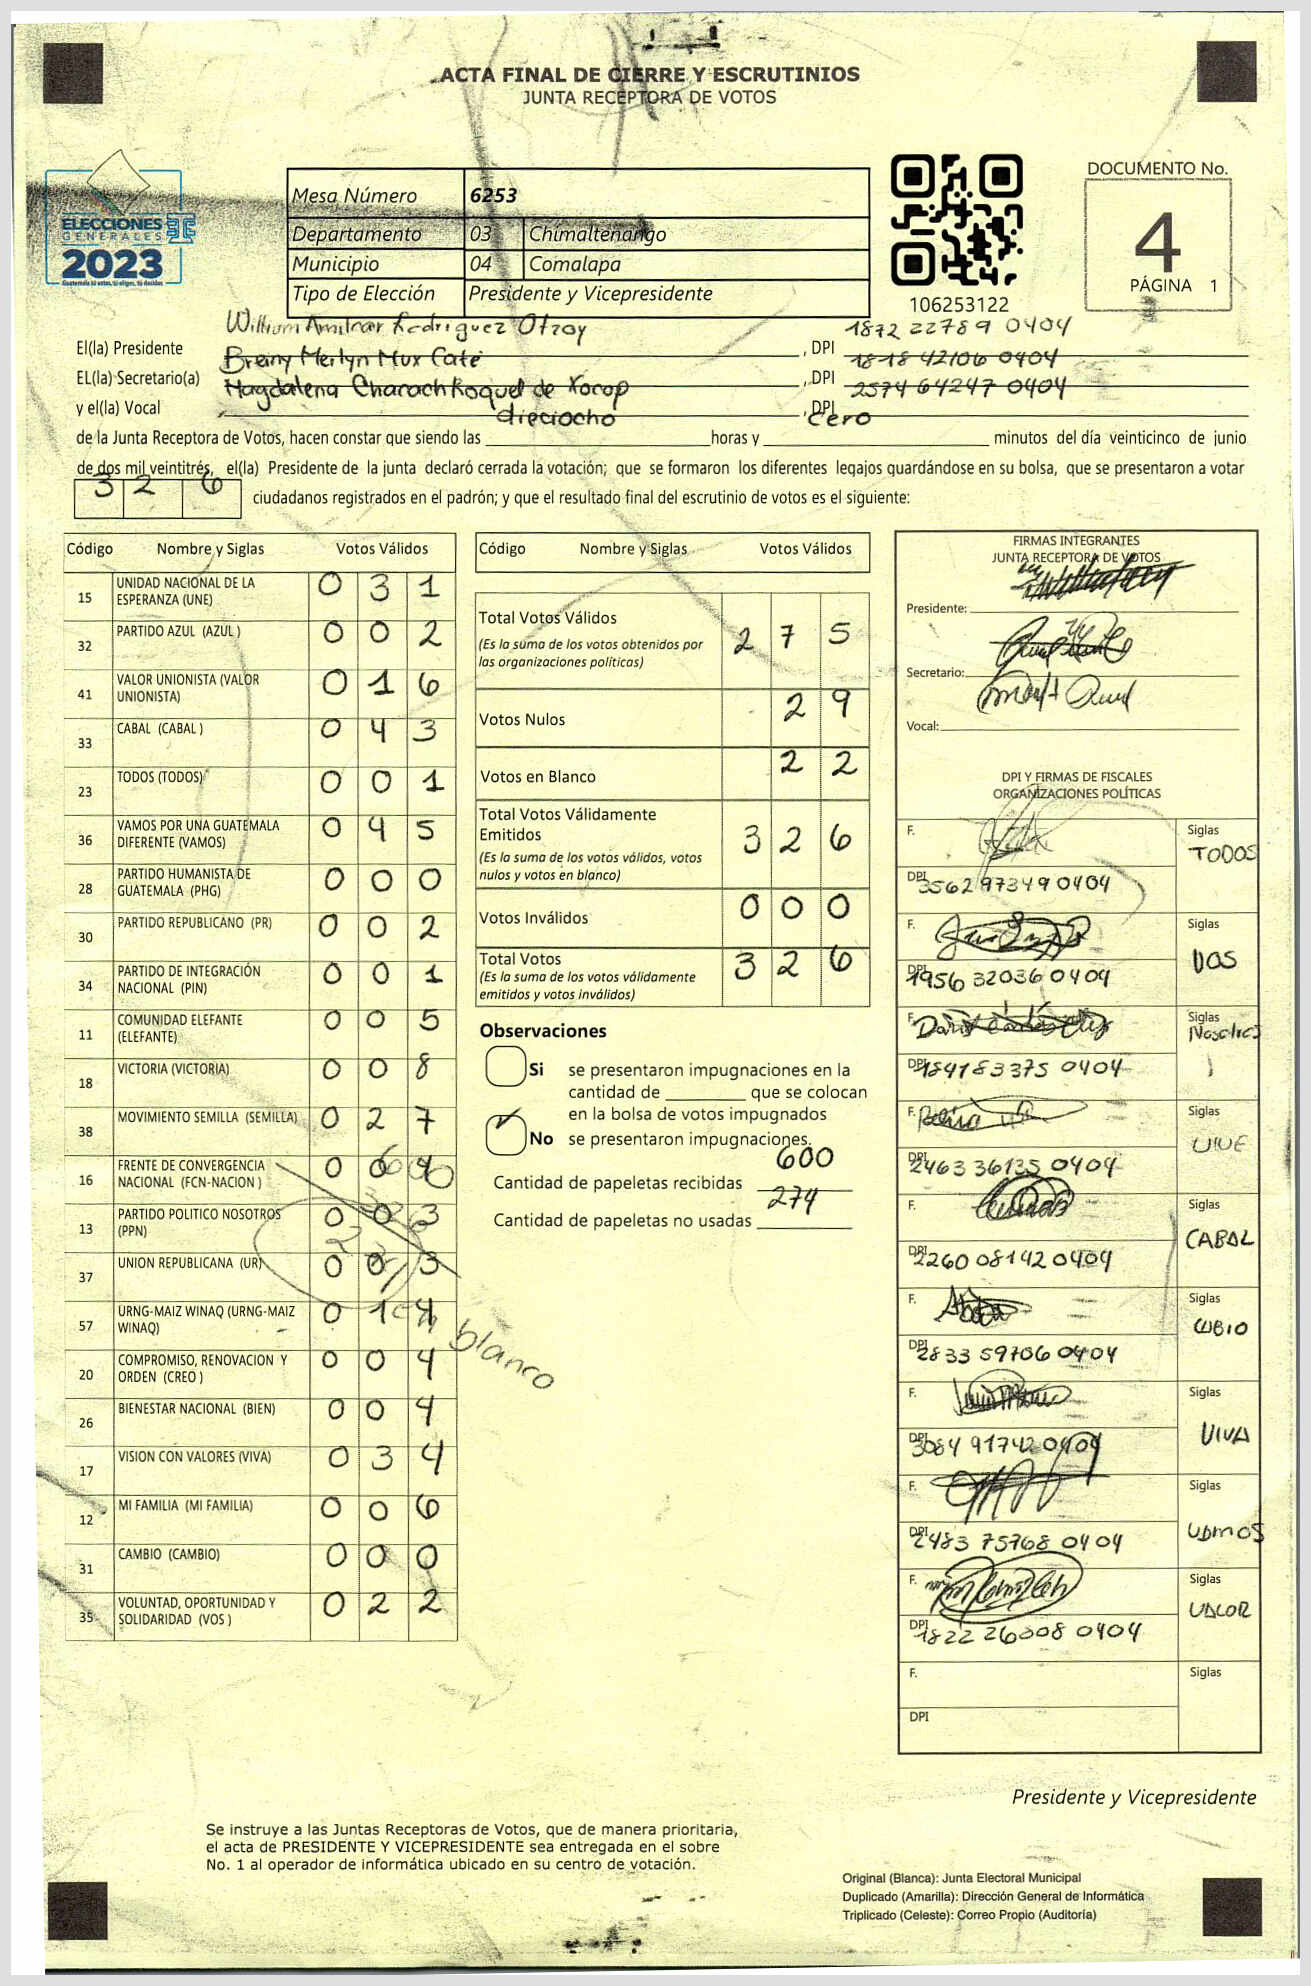 ACTA FINAL DE CIERRE Y ESCRUTINIOS
JUNTA RECEPTORA DE VOTOS
ELECCIONES
GENERALES
2023
Guatemala tú votas, tú eliges, tú decides
Mesa Número 6253
Departamento 03 Chimaltenango
Municipio 04 Comalapa
Tipo de Elección Presidente y Vicepresidente
106253122
DOCUMENTO No.
4
PÁGINA 1
William Amilcar Rodriguez Otzoy 1872 22789 0404
El(la) Presidente Breiny Merlyn Mux Caté , DPI 1818 42106 0404
EL(la) Secretario(a) Magdalena Charach Roquel de Xocop , DPI 2574 64247 0404
y el(la) Vocal dieciocho , DPI cero
de la Junta Receptora de Votos, hacen constar que siendo las horas y minutos del día veinticinco de junio
de dos mil veintitrés, el(la) Presidente de la junta declaró cerrada la votación; que se formaron los diferentes legajos quardándose en su bolsa, que se presentaron a votar
3 2 6 ciudadanos registrados en el padrón; y que el resultado final del escrutinio de votos es el siguiente:
Código Nombre y Siglas Votos Válidos
15 UNIDAD NACIONAL DE LA ESPERANZA (UNE) 0 3 1
32 PARTIDO AZUL (AZUL ) 0 0 2
41 VALOR UNIONISTA (VALOR UNIONISTA) 0 1 6
33 CABAL (CABAL ) 0 4 3
23 TODOS (TODOS) 0 0 1
36 VAMOS POR UNA GUATEMALA DIFERENTE (VAMOS) 0 4 5
28 PARTIDO HUMANISTA DE GUATEMALA (PHG) 0 0 0
30 PARTIDO REPUBLICANO (PR) 0 0 2
34 PARTIDO DE INTEGRACIÓN NACIONAL (PIN) 0 0 1
11 COMUNIDAD ELEFANTE (ELEFANTE) 0 0 5
18 VICTORIA (VICTORIA) 0 0 8
38 MOVIMIENTO SEMILLA (SEMILLA) 0 2 7
16 FRENTE DE CONVERGENCIA NACIONAL (FCN-NACION ) 0 0 4
13 PARTIDO POLITICO NOSOTROS (PPN) 0 0 3
37 UNION REPUBLICANA (UR) 0 0 3
57 URNG-MAIZ WINAQ (URNG-MAIZ WINAQ) 0 1 4
20 COMPROMISO, RENOVACION Y ORDEN (CREO ) 0 0 4
26 BIENESTAR NACIONAL (BIEN) 0 0 4
17 VISION CON VALORES (VIVA) 0 3 4
12 MI FAMILIA (MI FAMILIA) 0 0 6
31 CAMBIO (CAMBIO) 0 0 0
35 VOLUNTAD, OPORTUNIDAD Y SOLIDARIDAD (VOS ) 0 2 2
blanco
Código Nombre y Siglas Votos Válidos
Total Votos Válidos 2 7 5
(Es la suma de los votos obtenidos por
las organizaciones políticas)
Votos Nulos 2 9
Votos en Blanco 2 2
Total Votos Válidamente
Emitidos 3 2 6
(Es la suma de los votos válidos, votos
nulos y votos en blanco)
Votos Inválidos 0 0 0
Total Votos 3 2 6
(Es la suma de los votos válidamente
emitidos y votos inválidos)
Observaciones
Si se presentaron impugnaciones en la
cantidad de que se colocan
en la bolsa de votos impugnados
No se presentaron impugnaciones.
Cantidad de papeletas recibidas 600
Cantidad de papeletas no usadas 274
FIRMAS INTEGRANTES
JUNTA RECEPTORA DE VOTOS
Presidente:
Secretario:
Vocal:
DPI Y FIRMAS DE FISCALES
ORGANIZACIONES POLÍTICAS
F. Siglas TODOS
DPI 3562 97349 0404
F. Siglas VOS
DPI 1956 32036 0404
F. Siglas Nosotros
DPI 1841 83375 0404
F. Siglas UNE
DPI 2463 36135 0404
F. Siglas CABAL
DPI 2260 08142 0404
F. Siglas
DPI 2833 59706 0404
F. Siglas VIVA
DPI 3084 91742 0404
F. Siglas VAMOS
DPI 2483 75768 0404
F. Siglas VALOR
DPI 1822 26008 0404
F. Siglas
DPI
Presidente y Vicepresidente
Se instruye a las Juntas Receptoras de Votos, que de manera prioritaria,
el acta de PRESIDENTE Y VICEPRESIDENTE sea entregada en el sobre
No. 1 al operador de informática ubicado en su centro de votación.
Original (Blanca): Junta Electoral Municipal
Duplicado (Amarilla): Dirección General de Informática
Triplicado (Celeste): Correo Propio (Auditoría)